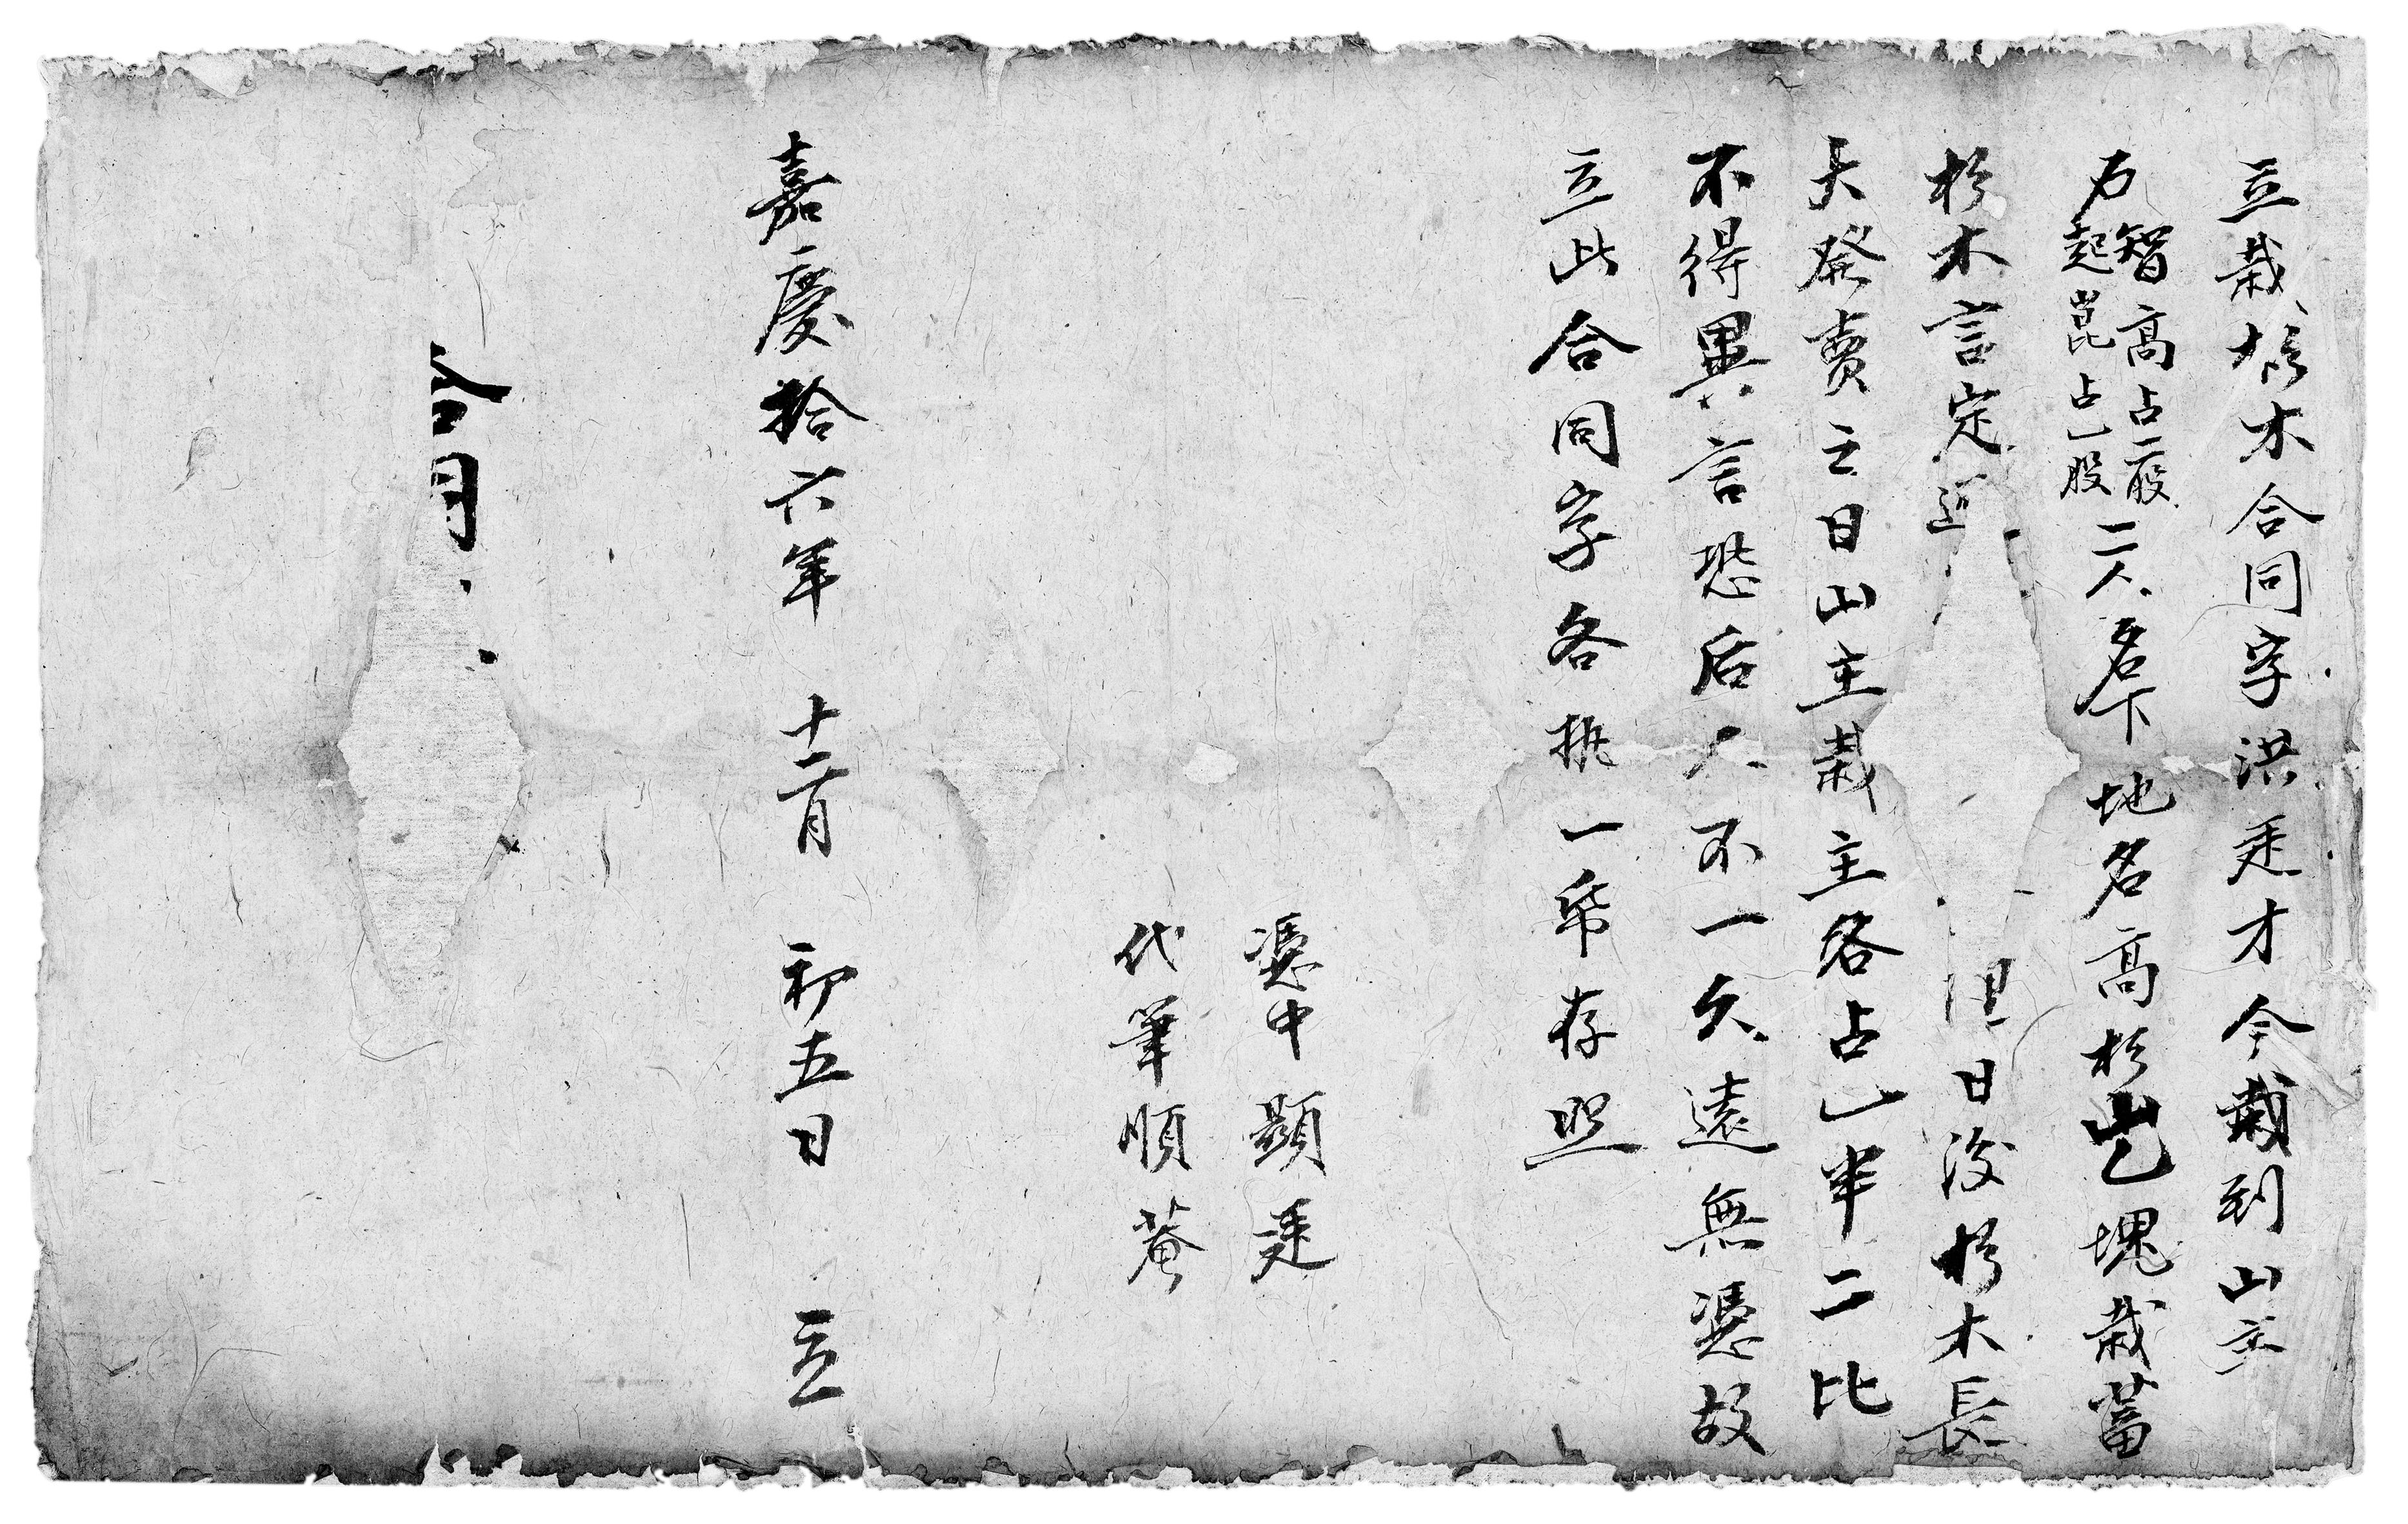 立栽杉木合同字洪廷才今栽到山主
万智高占二股起崑占乚股二人名下地名高杉屯塊栽蓄
杉木言定 日後杉木長
大發賣之日山主栽主各占乚半二比
不得異言恐后人不一久遠無憑故
立此合同字各執一帋存照
憑中顯廷
代筆順菴
嘉慶拾六年十二月初五日立
合同